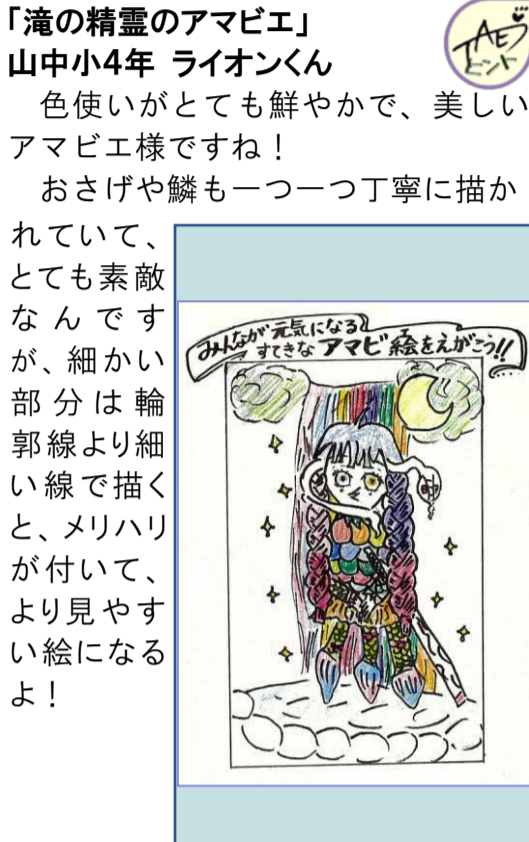 「滝の精霊のアマビエ」
山中小4年 ライオンくん
TAEラ
ヒント
色使いがとても鮮やかで、美しい
アマビエ様ですね！
おさげや鱗も一つ一つ丁寧に描か
れていて、
とても素敵
なんです
が、細かい
部分は輪
郭線より細
い線で描く
と、メリハリ
が付いて、
より見やす
い絵になる
よ！
みんなが元気になる
すてきなアマビ絵をえがこう!!
エ